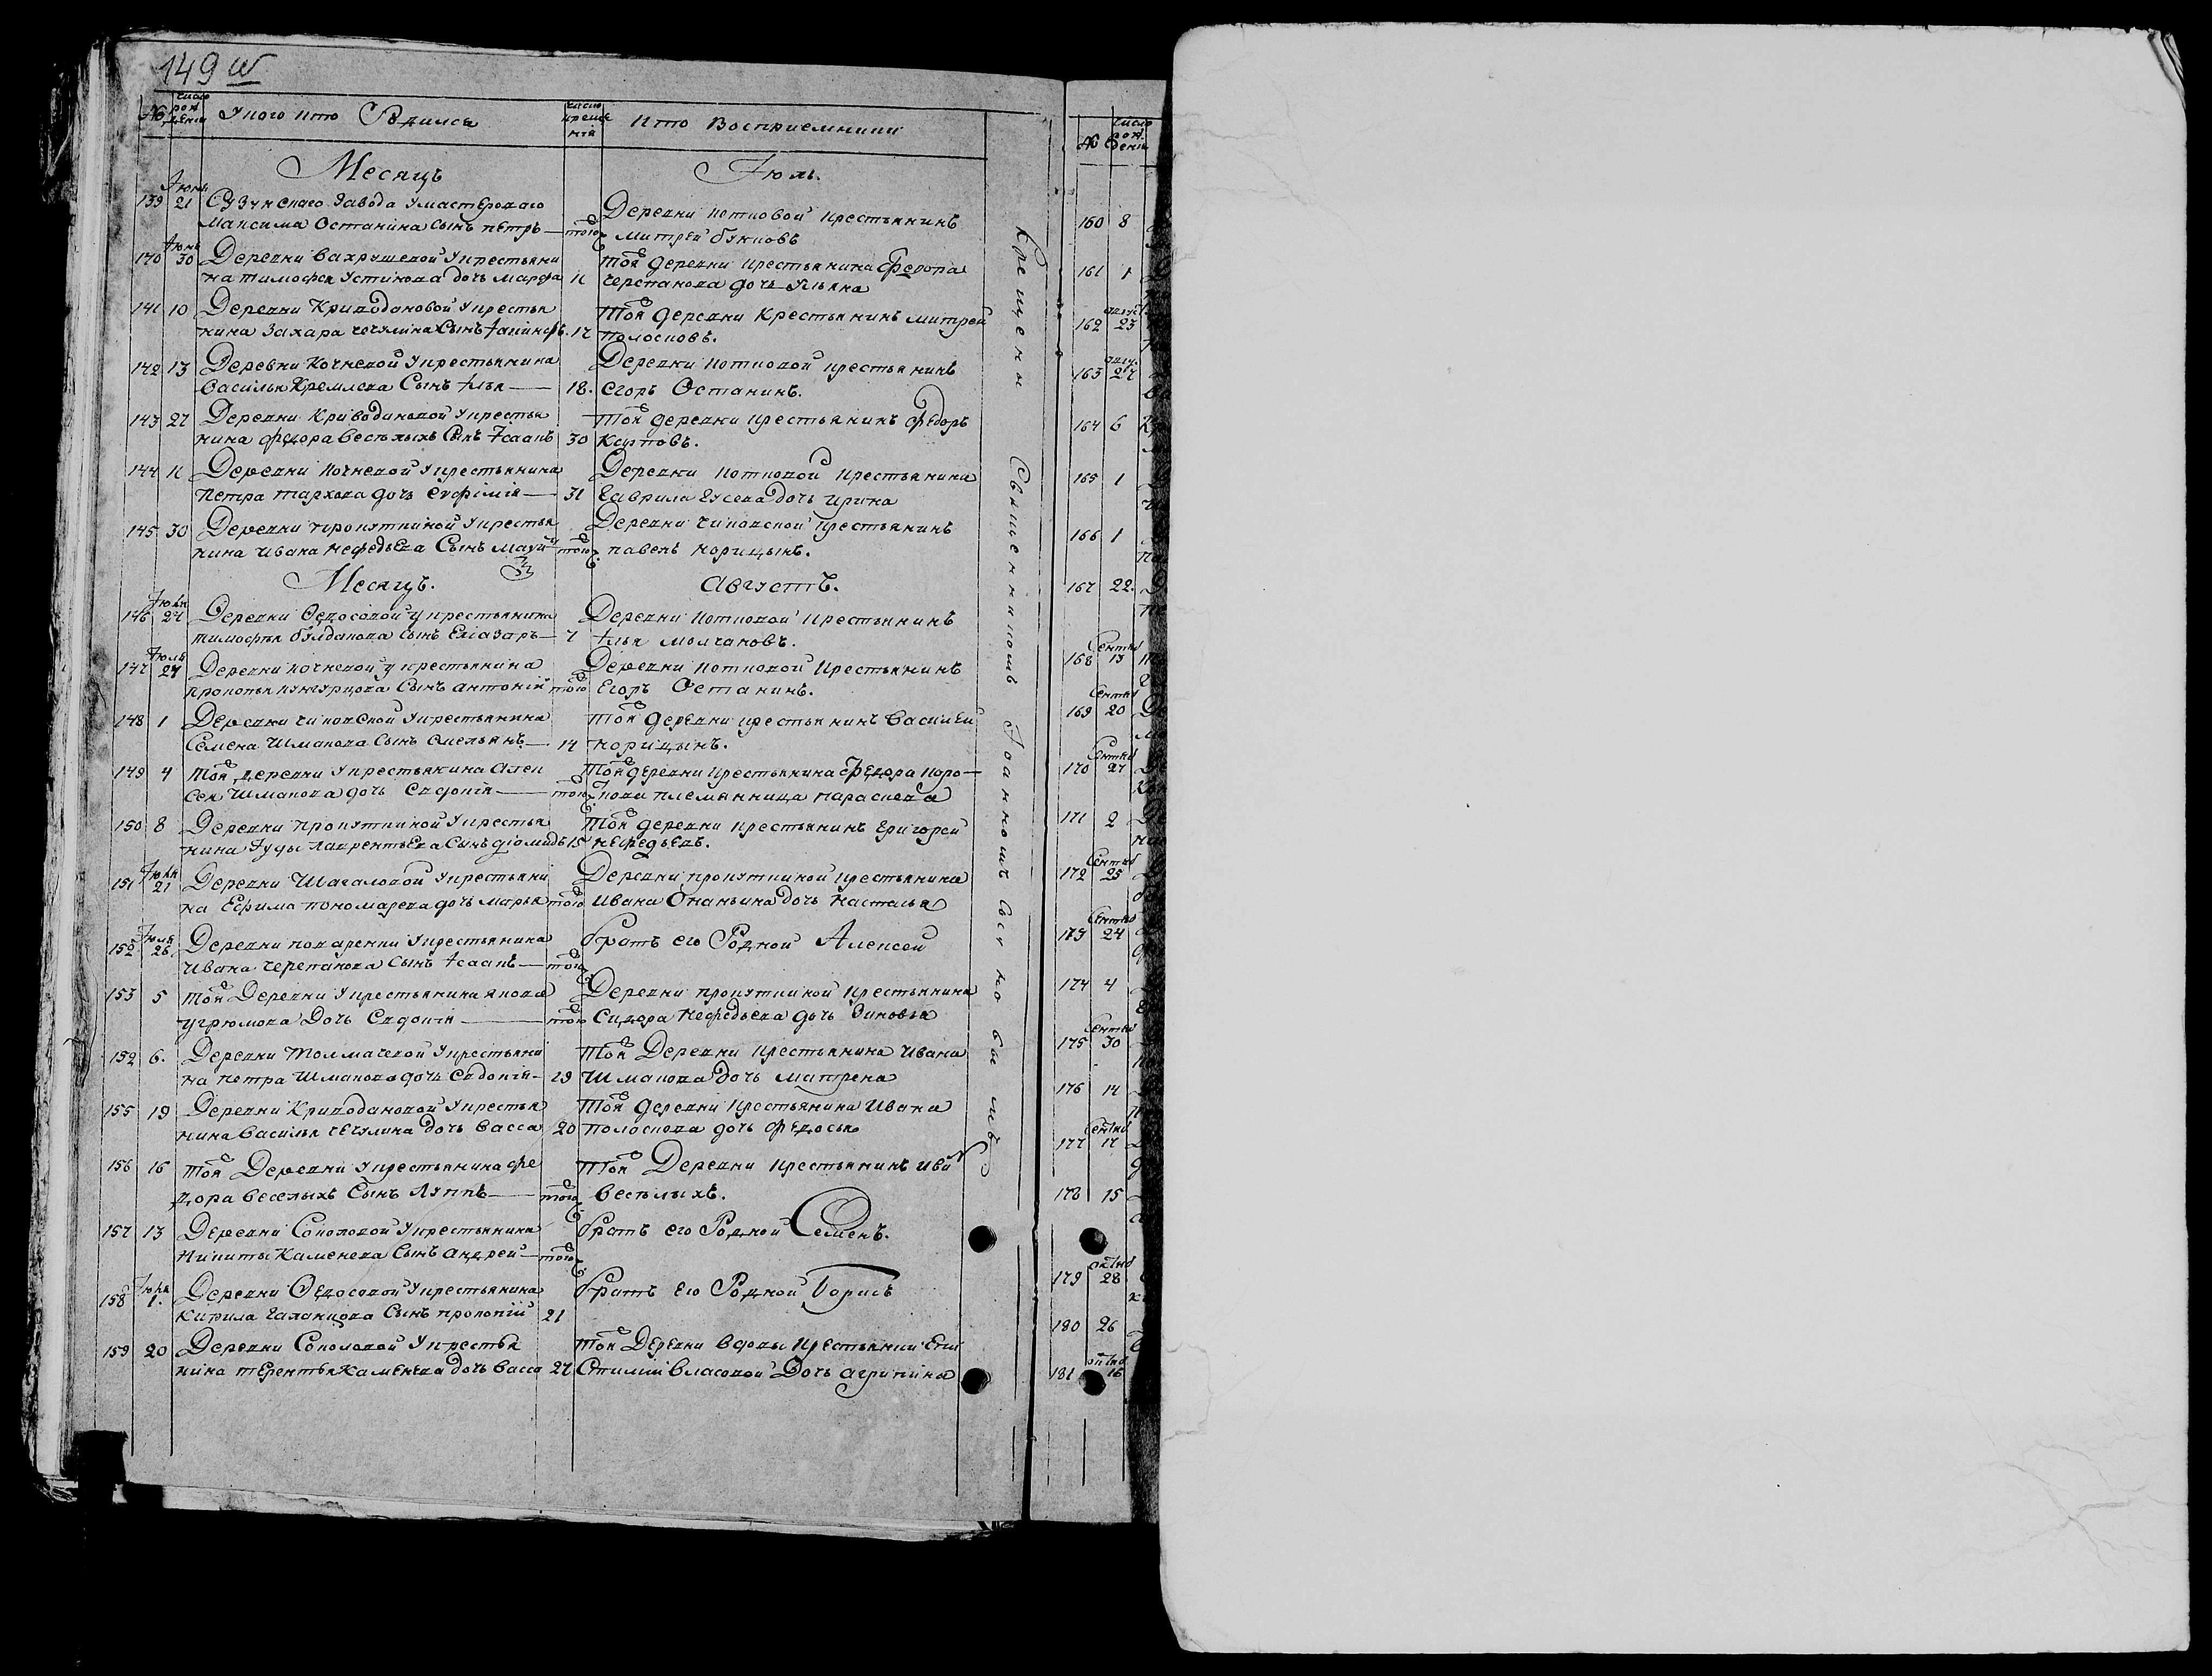 149 об
№ число рождения У кого кто Родился число крещения Кто Восприемники
Месяцъ Июль.
139 Июнь 21 Сузунскаго Завода у мастероваго
Максима Останина Сынъ петръ — того
Деревни котковой крестьянинъ
митрей буньковъ
140 Июнь 30 Деревни вахрушевой у крестьяни
на тимофея устинова дочь марфа 11
той деревни крестьянина Федора
черепанова дочь ульяна
141 10 Деревни Криводановой у крестья
нина Захара чечулина Сынъ Iакинфъ. 17
той деревни Крестьянинъ митрей
полосковъ.
142 13 Деревни Кочневой у крестьянина
василья Кремлева Сынъ Iлья — 18.
Деревни котковой крестьянинъ
егоръ Останинъ.
143 27 Деревни Криводановой у крестья
нина федора веселыхъ Сынъ Iсаакъ 30
той деревни крестьянинъ федоръ
Карповъ.
144 11 Деревни кочневой у крестьянина
петра тархова дочь евфимiя — 31
Деревни котковой крестьянина
Гаврила Гусева дочь ирина
145 30 Деревни прокуткиной у крестья
нина ивана нефедьева Сынъ — того
Деревни чиковской крестьянинъ
павелъ корицынъ.
Месяцъ. Августъ.
146 24 Деревни Федосовой у крестьянина
тимофея булдакова Сынъ Елазаръ — 7
Деревни котковой крестьянинъ
Iлья молчановъ.
147 Июль 27 Деревни кочневой у крестьянина
прокопья кунгурцова Сынъ антонiй того
Деревни котковой крестьянинъ
Егоръ Останинъ.
148 1 Деревни чиковской у крестьянина
Семена Шмакова Сынъ омельянъ — 14
той деревни крестьянинъ василей
корицынъ.
149 4 той деревни у крестьянина алек
сея Шмакова дочь Евдокiя — того
той деревни крестьянина федора каро—
племянница параскева
150 8 Деревни прокуткиной у крестья
нина Iуды лаврентьева Сынъ дiомидъ 15
той деревни крестьянинъ григорей
нефедьевъ.
151 21 Деревни Шагаловой у крестьяни
на Ефима пономарева дочь марья того
Деревни прокуткиной крестьянина
ивана Ананьина дочь настасья
152 Июль 26. Деревни поваренки у крестьянина
ивана черепанова Сынъ Iсаакъ — того
братъ его Родной Алексей
153 5 той Деревни у крестьянина якова
угрюмова Дочь Евдокiя — того
Деревни прокуткиной крестьянина
Сидора нефедьева дочь Зиновья
152 6. Деревни толмачевой у крестьяни
на петра Шмакова дочь Евдокiя — 19
той Деревни крестьянина ивана
Шмакова Дочь матрена
155 19 Деревни Криводановой у крестья
нина василья чечулина дочь васса 20
той деревни крестьянина ивана
полоскова дочь федосья
156 16 той Деревни у крестьянина фе
дора веселыхъ Сынъ Луппъ — того
той Деревни крестьянинъ
веселыхъ.
157 13 Деревни Соколовой у крестьянина
Никиты Каменева Сынъ андрей — того
братъ его Родной Семенъ.
158 1. Деревни Федосовой у крестьянина
кирила галанцова Сынъ прокопiй 21
братъ его Родной борисъ
159 20 Деревни Соколовой у крестья
нина терентья Каменева дочь васса 27
той Деревни вдовы крестьянки
власовой Дочь агрипина
крещены Священникомъ Iоанномъ
№ число рождения
160 8
161 1
162 август 23
163 27
164 6
165 1
166 1
167 22.
168 Сентяб 13
169 Сентяб 20
170 Сентяб 27
171 2
172 Сентяб 25
173 Сентяб 24
174 4
175 Сентяб 30
176 14
177 Сентяб 17
178 15
179 28
180 26
181 16